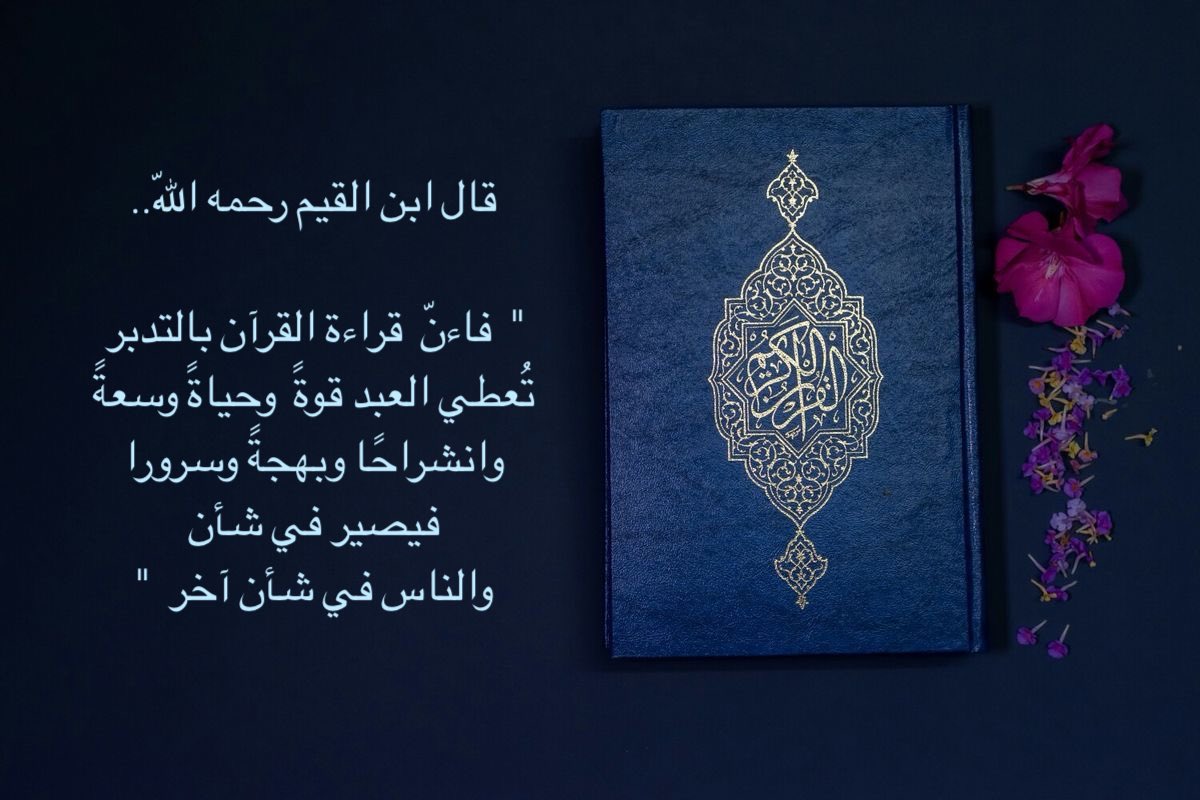 قال ابن القيم رحمه اللّه..
" فاءنّ قراءة القرآن بالتدبر
تُعطي العبد قوةً وحياةً وسعةً
وانشراحًا وبهجةً وسرورا
فيصير في شأن
والناس في شأن آخر "
القرآن الكريم